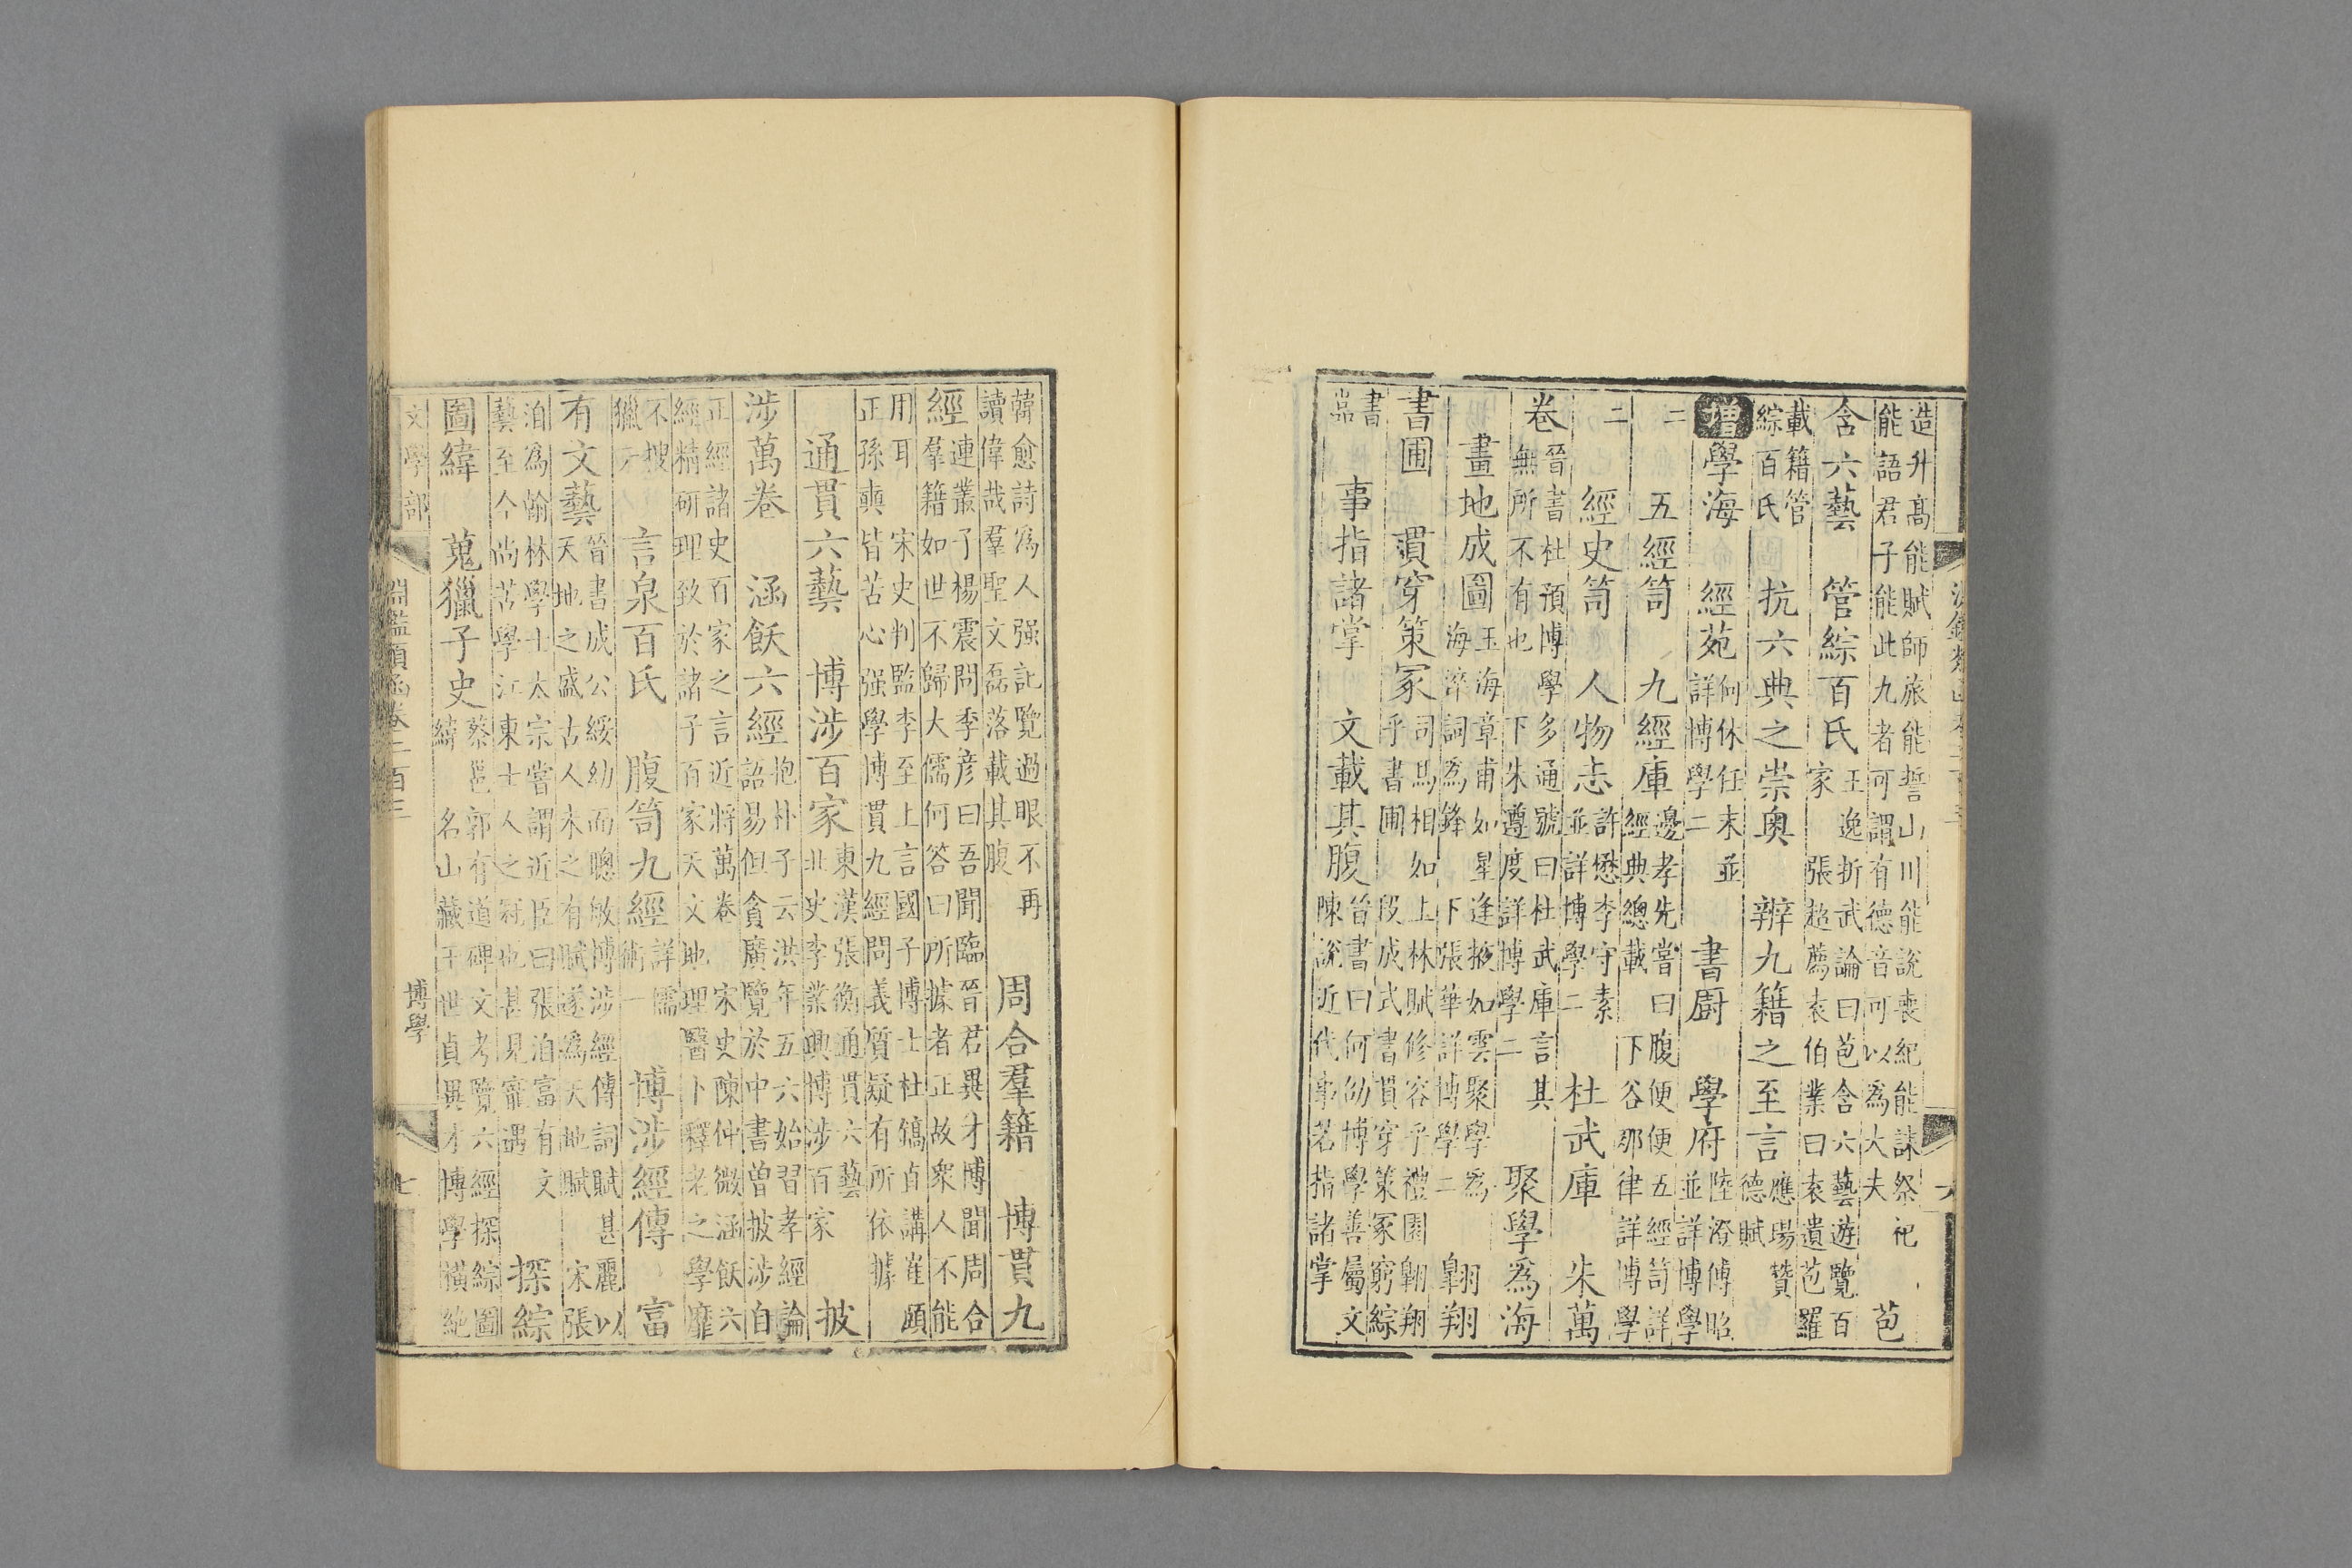 造升高能賦師旅能誓山川能說喪紀能誄祭祀
能語君子能此九者可謂有德音可以為大夫 苞
含六藝 管綜百氏 王逸折武論曰苞含六藝遊覽百
家 張超薦袁伯業曰袁遺苞羅
載籍管
綜百氏 抗六典之崇奧 辨九籍之至言 應瑒贊
德賦
增學海 經苑 何休任末並
詳博學二 書厨 學府 陸澄傅昭
並詳博學
二 五經笥 九經庫 邊孝先嘗曰腹便便五經笥詳
經典總載 下谷那律詳博學
二 經史笥 人物志 許懋李守素
並詳博學二 杜武庫 朱萬
卷 晉書杜預博學多通號曰杜武庫言其
無所不有也 下朱遵度詳博學二 聚學為海
畫地成圖 玉海章甫如星逢掖如雲聚學為
海淬詞為鋒 下張華詳博學二 翺翔
書圃 貫穿策冢 司馬相如上林賦修容乎禮園翺翔
乎書圃 段成式書貫穿策冢窮綜
書
喦 事指諸掌 文載其腹 晉書曰何劭博學善屬文
陳說近代事若指諸掌
韓愈詩為人强記覽過眼不再
讀偉哉羣聖文磊落載其腹 周合羣籍 博貫九
經 連叢子楊震問季彦曰吾聞臨晉君異才博聞周合
羣籍如世不歸大儒何答曰所據者正故衆人不能
用耳 宋史判監李至上言國子博士杜鎬直講崔頤
正孫奭皆苦心强學博貫九經問義質疑有所依據
通貫六藝 博涉百家 東漢張衡通貫六藝
北史李業興博涉百家 披
涉萬卷 涵飫六經 抱朴子云洪年五六始習孝經論
語易但貪廣覽於中書曾披涉自
正經諸史百家之言近將萬卷 宋史陳仲微涵飫六
經精研理致於諸子百家天文地理醫卜釋老之學靡
不搜
獵 言泉百氏 腹笥九經 詳儒
術一 博涉經傳 富
有文藝 晉書成公綏幼而聰敏博涉經傳詞賦甚麗以
天地之盛古人未之有賦遂為天地賦 宋張
洎為翰林學士太宗嘗謂近臣曰張洎富有文
藝至今尚苦學江東士人之冠也甚見寵遇 探綜
圖緯 蒐獵子史 蔡邕郭有道碑文考覽六經探綜圖
緯 名山藏王世貞異才博學橫絶
文學部
淵鑑類函卷二百三
博學
七